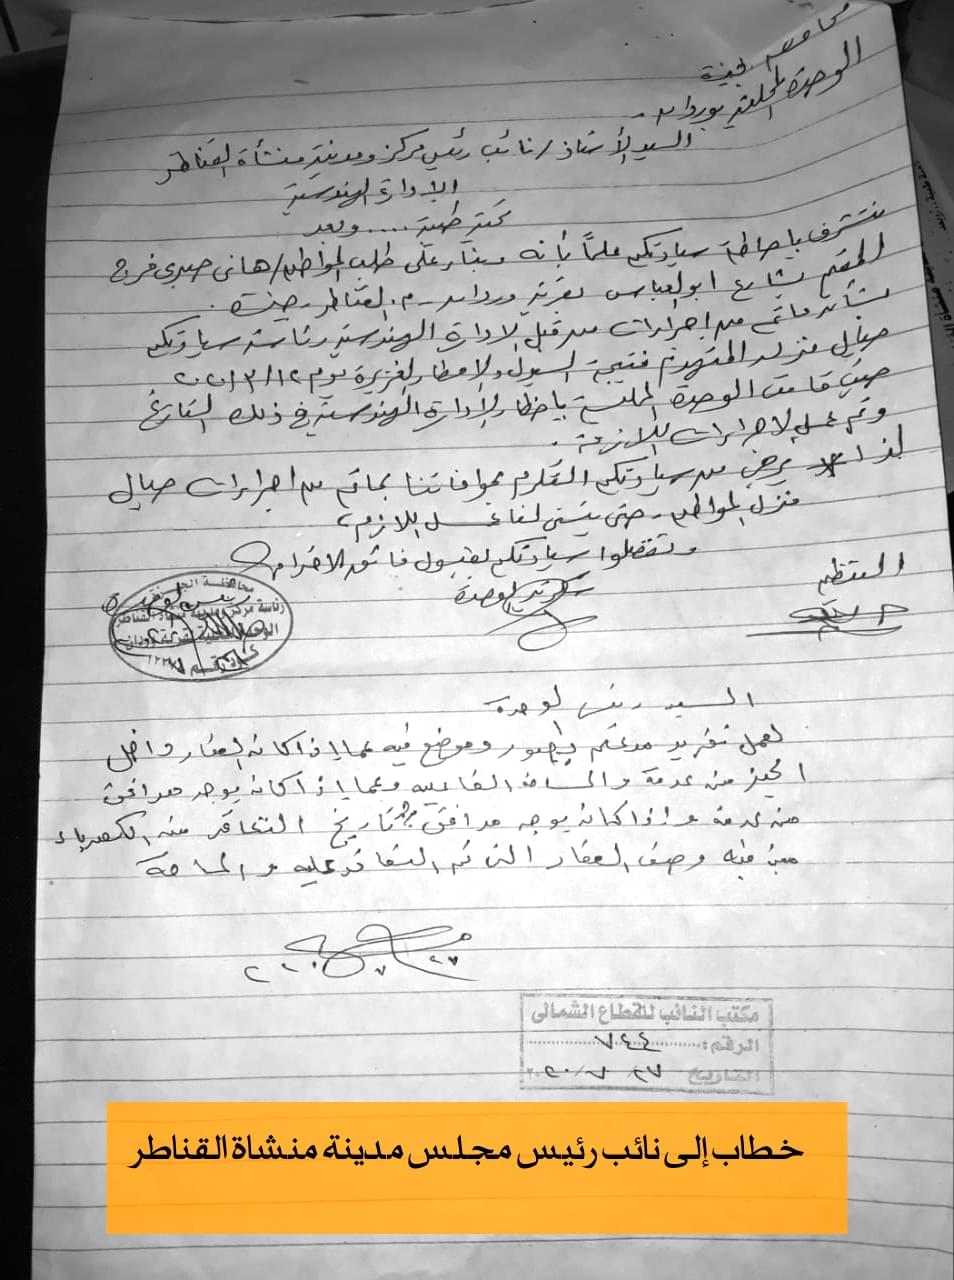 محافظة الجيزة
الوحدة المحلية بوردان
السيد الأستاذ / نائب رئيس مركز ومدينة منشأة القناطر
الإدارة الهندسية
تحية طيبة .... وبعد
نتشرف بإحاطة سيادتكم علماً بأنه وبناء على طلب المواطن / هاني صبري فرج
المقيم بشارع ابو العباس بقرية وردان - م. القناطر - جيزة .
بشأن ما تم من إجراءات من قبل الإدارة الهندسية رئاسة سيادتكم
حيال منزله المتهدم نتيجة السيول والأمطار الغزيرة يوم ١٢/٣/٢٠٢٠
حيث قامت الوحدة المحلية بإخطار الإدارة الهندسية في ذلك التاريخ
وتم عمل الإجراءات اللازمة .
لذا نرجو من سيادتكم التكرم بموافاتنا بما تم من إجراءات حيال
منزل المواطن - حتى يتسنى لنا عمل اللازم ،
وتفضلوا سيادتكم بقبول فائق الاحترام
المنظم
سكرتير الوحدة
رئيس الوحدة
محافظة الجيزة
رئاسة مركز ومدينة منشأة القناطر
الوحدة المحلية بقرية وردان
السيد رئيس الوحدة
لعمل تقرير مدعم بالصور وموضح فيه عما إذا كان العقار داخل
الحيز من عدمة والمساحة الفاعلية وعما إذا كان يوجد مرافق
من عدمة وإذا كان يوجد مرافق تاريخ التعاقد من الكهرباء
مبين فيه وصف العقار التى تم التعاقد عليه والمساحة
٢٧ ٧ ٢٠٢٠
مكتب النائب للقطاع الشمالى
الرقم: ٧٤٤
التاريخ ٢٧ / ٧ / ٢٠٢٠
خطاب إلى نائب رئيس مجلس مدينة منشاة القناطر